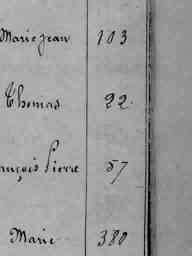 Marie Jean 103
Thomas 22
ançois Pierre 57
Marie 380